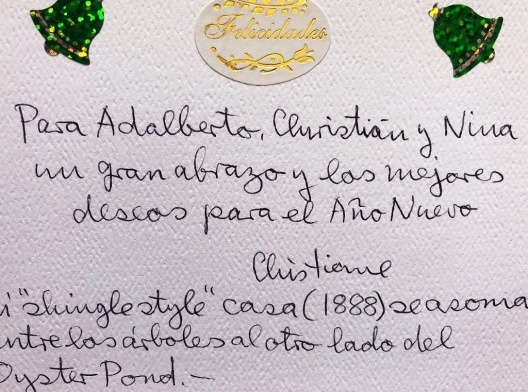 Felicidades
Para Adalberto, Christián y Nina
un gran abrazo y los mejores
deseos para el Año Nuevo
Christiane
i "shingle style" casa (1888) se asoma
ntre los árboles al otro lado del
Oyster Pond.—